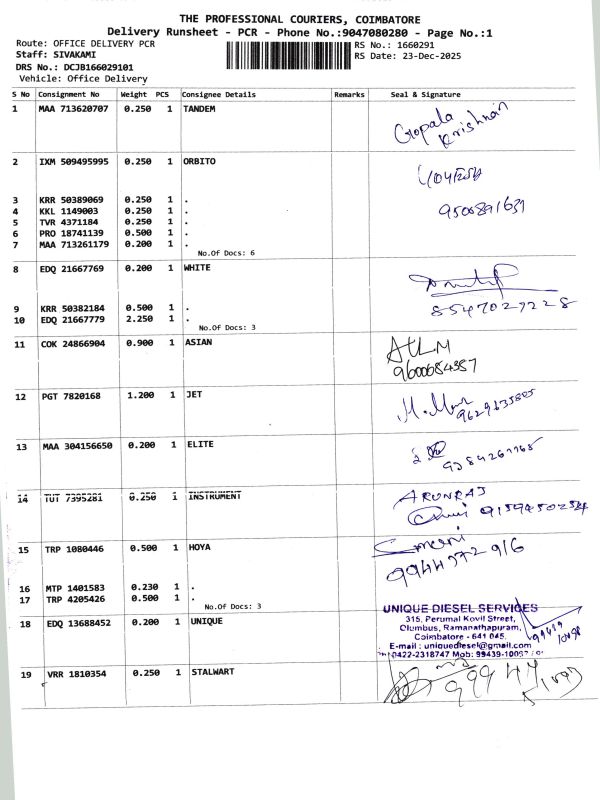 THE PROFESSIONAL COURIERS, COIMBATORE
Delivery Runsheet - PCR - Phone No.:9047080280 - Page No.:1
Route: OFFICE DELIVERY PCR
RS No.: 1660291
Staff: SIVAKAMI
RS Date: 23-Dec-2025
DRS No.: DCJB166029101
Vehicle: Office Delivery
S No Consignment No Weight PCS Consignee Details Remarks Seal & Signature
1 MAA 713620707 0.250 1 TANDEM
Gopala
Krishnan
2 IXM 509495995 0.250 1 ORBITO
3 KRR 50389069 0.250 1 .
4 KKL 1149003 0.250 1 .
5 TVR 4371184 0.250 1 .
6 PRO 18741139 0.500 1 .
7 MAA 713261179 0.200 1 .
No.Of Docs: 6
8 EDQ 21667769 0.200 1 WHITE
8547027228
9 KRR 50382184 0.500 1 .
10 EDQ 21667779 2.250 1 .
No.Of Docs: 3
11 COK 24866904 0.900 1 ASIAN
9600684357
12 PGT 7820168 1.200 1 JET
13 MAA 304156650 0.200 1 ELITE
14 TUT 7395281 0.250 1 INSTRUMENT
ARUNRAJ
15 TRP 1080446 0.500 1 HOYA
9944372916
16 MTP 1401583 0.230 1 .
17 TRP 4205426 0.500 1 .
No.Of Docs: 3
18 EDQ 13688452 0.200 1 UNIQUE
UNIQUE DIESEL SERVICES
315, Perumal Kovil Street,
Olumbus, Ramanathapuram,
Coimbatore - 641 045.
E-mail : uniquediesel@gmail.com
0422-2318747 Mob: 99439-10097
19 VRR 1810354 0.250 1 STALWART